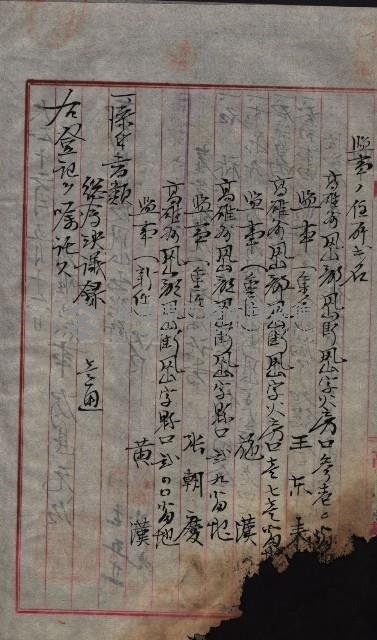 監事ノ住所氏名
高雄州鳳山郡鳳山街鳳山字火房口參壱〇
監事（重任） 王東来
高雄州鳳山郡鳳山街鳳山字火房口壱七壱番地
監事（重任） 漢
高雄州鳳山郡鳳山街鳳山字縣口貳九番地
監事（重任） 張朝慶
高雄州鳳山郡鳳山街鳳山字縣口貳〇番地
監事（新任） 黄漢
一添付書類
総會決議録 壱通
右登記ヲ嘱託ス